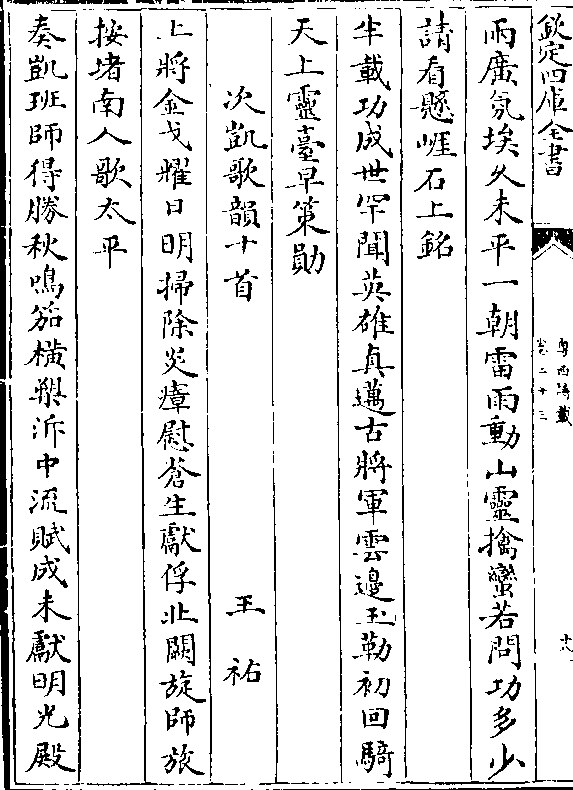 欽定四庫全書
粵西詩載
卷二十三
十八
兩廣氛埃久未平一朝雷雨動山靈擒蠻若問功多少
請看懸崕石上銘
半載功成世罕聞英雄真邁古將軍雲邊玉勒初回騎
天上靈臺早策勛
次凱歌韻十首 王祐
上將金戈耀日明掃除炎瘴慰蒼生獻俘北闕旋師旅
按堵南人歌太平
奏凱班師得勝秋鳴笳橫槊泝中流賦成未獻明光殿